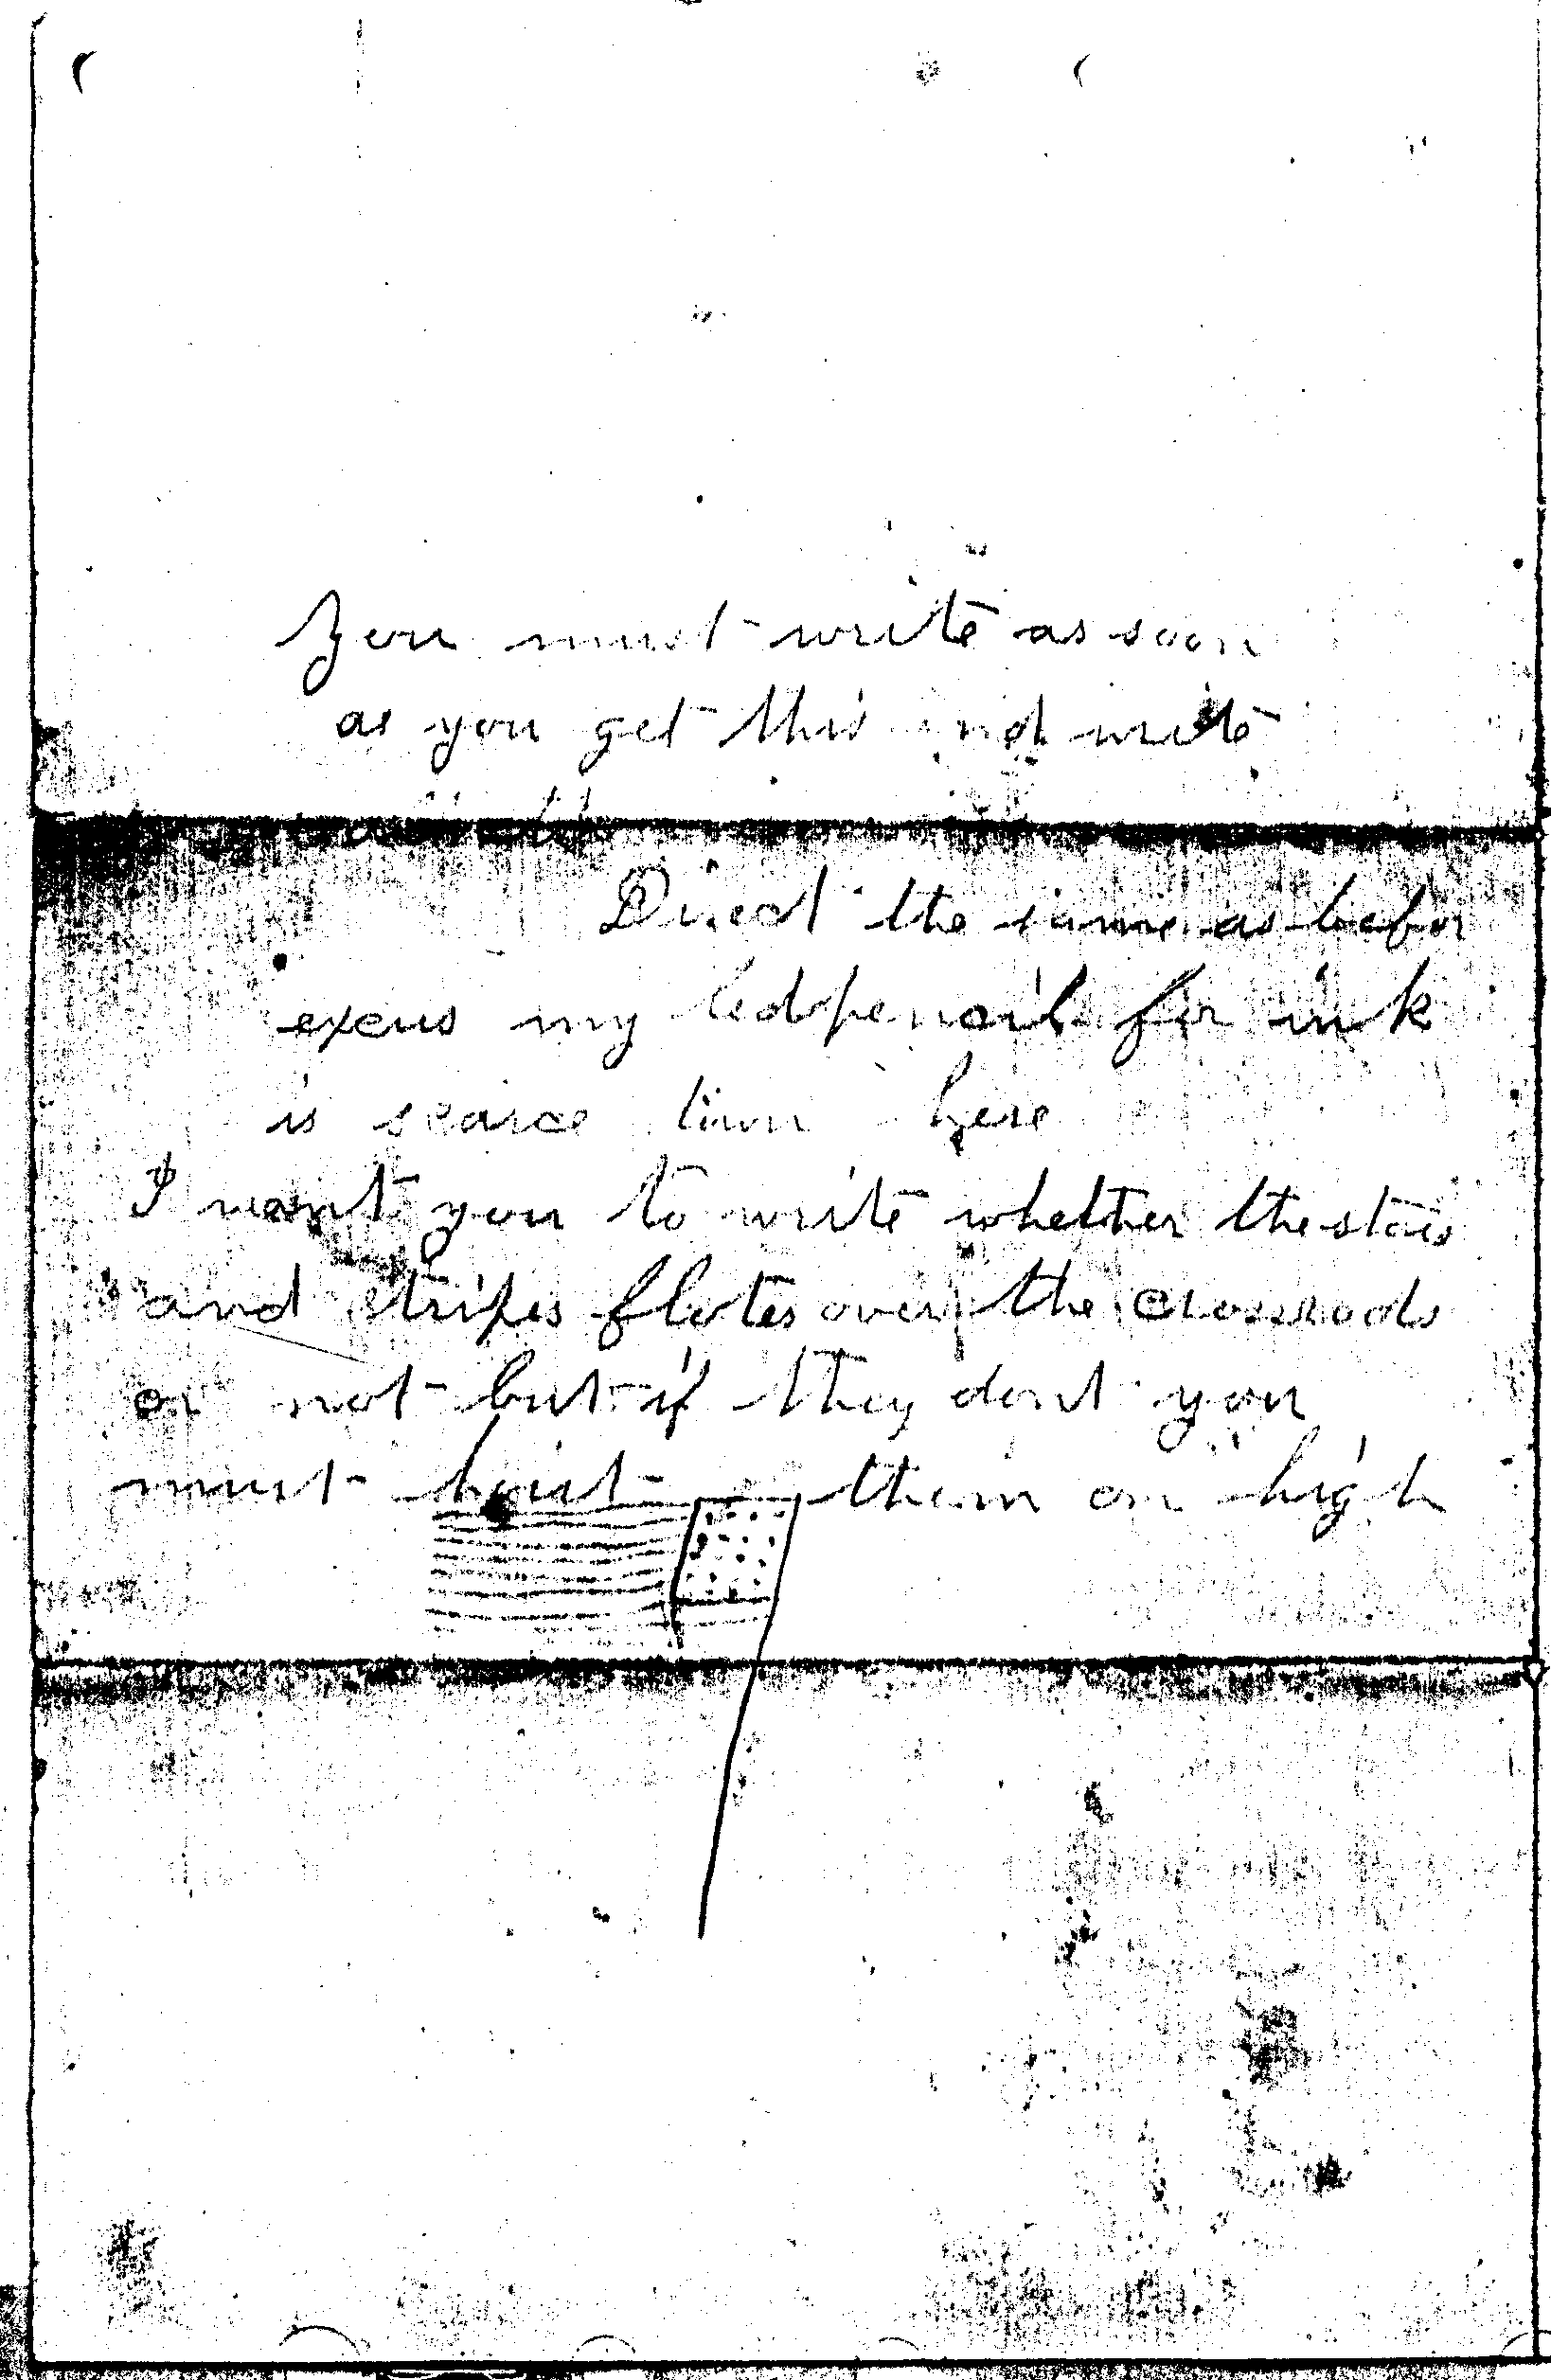 You must write as soon
as you get this and write
all the
Direct the same as befor
excus my ledpencil for ink
is scarce down here
I want you to write whether the stars
and stripes flotes over the crossrods
or not but if they dont you
must hoist them on high